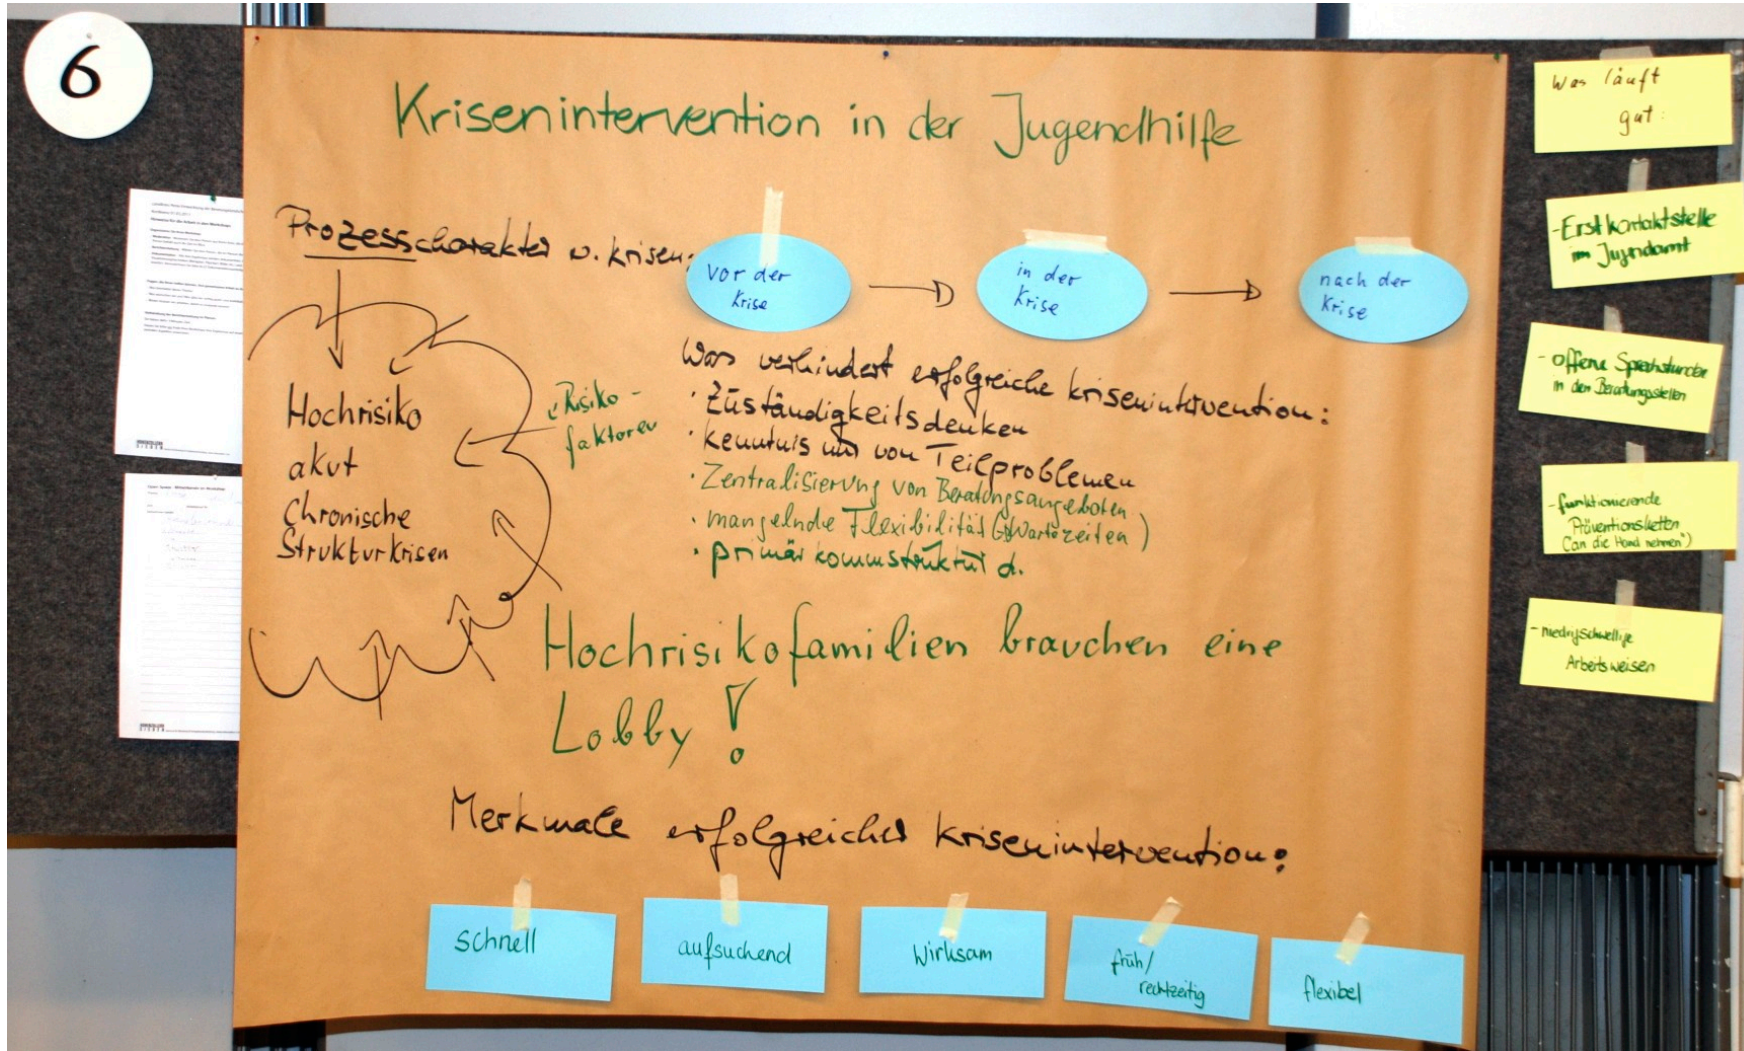 6
Krisenintervention in der Jugendhilfe
Prozesscharakter v. Krisen:
vor der
Krise
in der
Krise
nach der
Krise
Hochrisiko
akut
Chronische
Strukturkrisen
Risiko-
faktoren
Was verhindert erfolgreiche Krisenintervention:
· Zuständigkeitsdenken
· Kenntnis nur von Teilproblemen
· Zentralisierung von Beratungsangeboten
· mangelnde Flexibilität (Wartezeiten)
· primär kommstruktur d.
Hochrisikofamilien brauchen eine
Lobby!
Merkmale erfolgreicher Krisenintervention:
schnell
aufsuchend
Wirksam
früh/
rechtzeitig
flexibel
Was läuft
gut:
- Erstkontaktstelle
im Jugendamt
- offene Sprechstunden
in den Beratungsstellen
- funktionierende
Präventionsketten
("an die Hand nehmen")
- niedrigschwellige
Arbeitsweisen